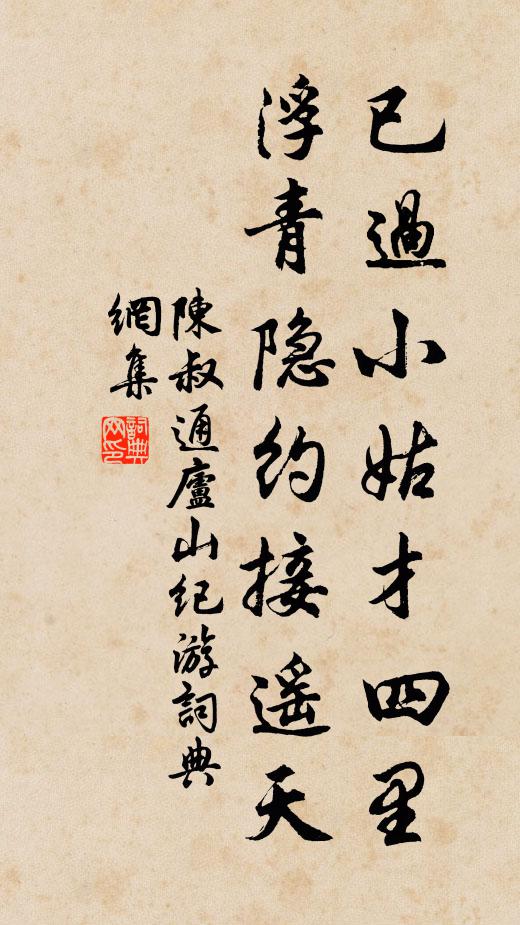 已過小姑才四里
浮青隐約接遥天
陳叔通廬山纪游詞典
網集
詞典
网印